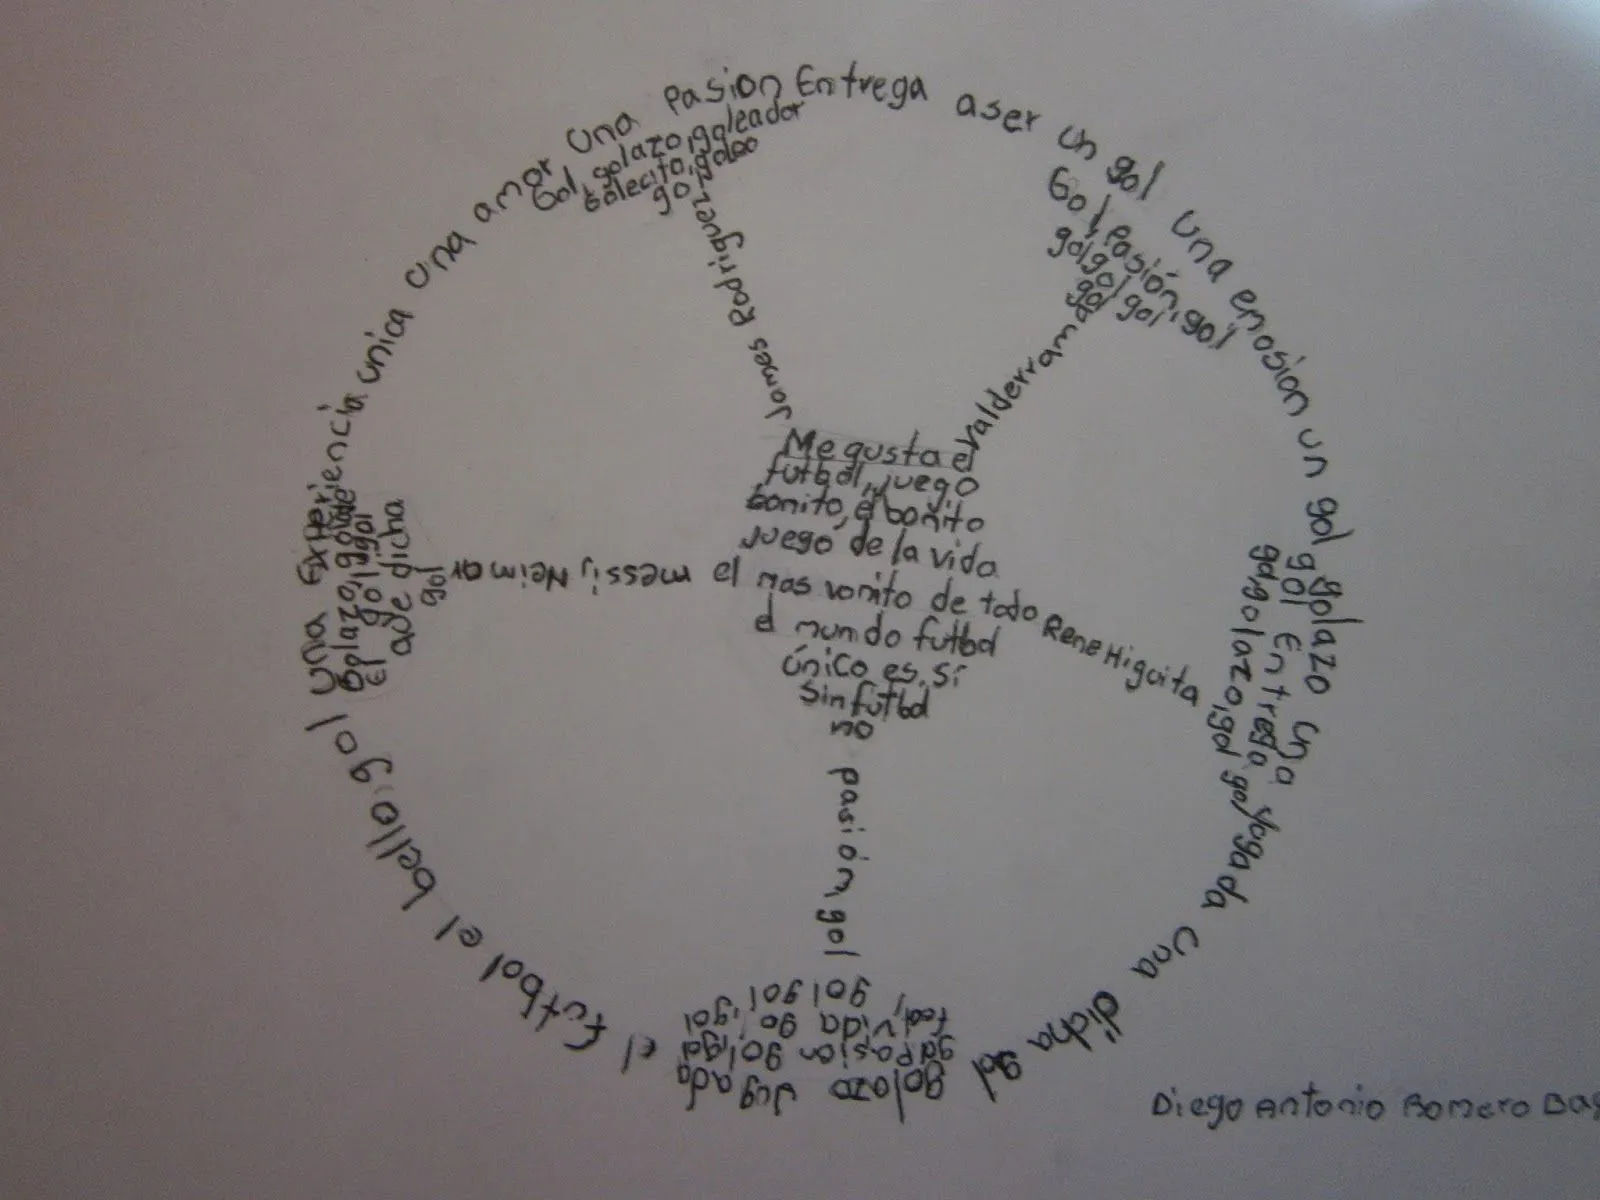 una Experiencia unica una amor una pasion Entrega aser un gol una emosion un gol golazo una yugada una dicha gol
el futbol el bello, gol
Gol, golazo, goleador
Golecito, goleo
gol
James Rodriguez
Gol, pasión, gol
gol, gol gol
gol gol
Valderrama
Me gusta el
futbol, juego
bonito, el bonito
juego de la vida
el mas vonito de todo
el mundo futbol
único es, si
sin futbol
no
messi, Neimar
gol
que dicha
El gol, gol
golazo, gol
Rene Higuita
gol Entrega
gol, golazo, gol gol
pasión, gol
gol gol
vida gol, gol
pasion gol
golazo Jugada
Diego Antonio Romero